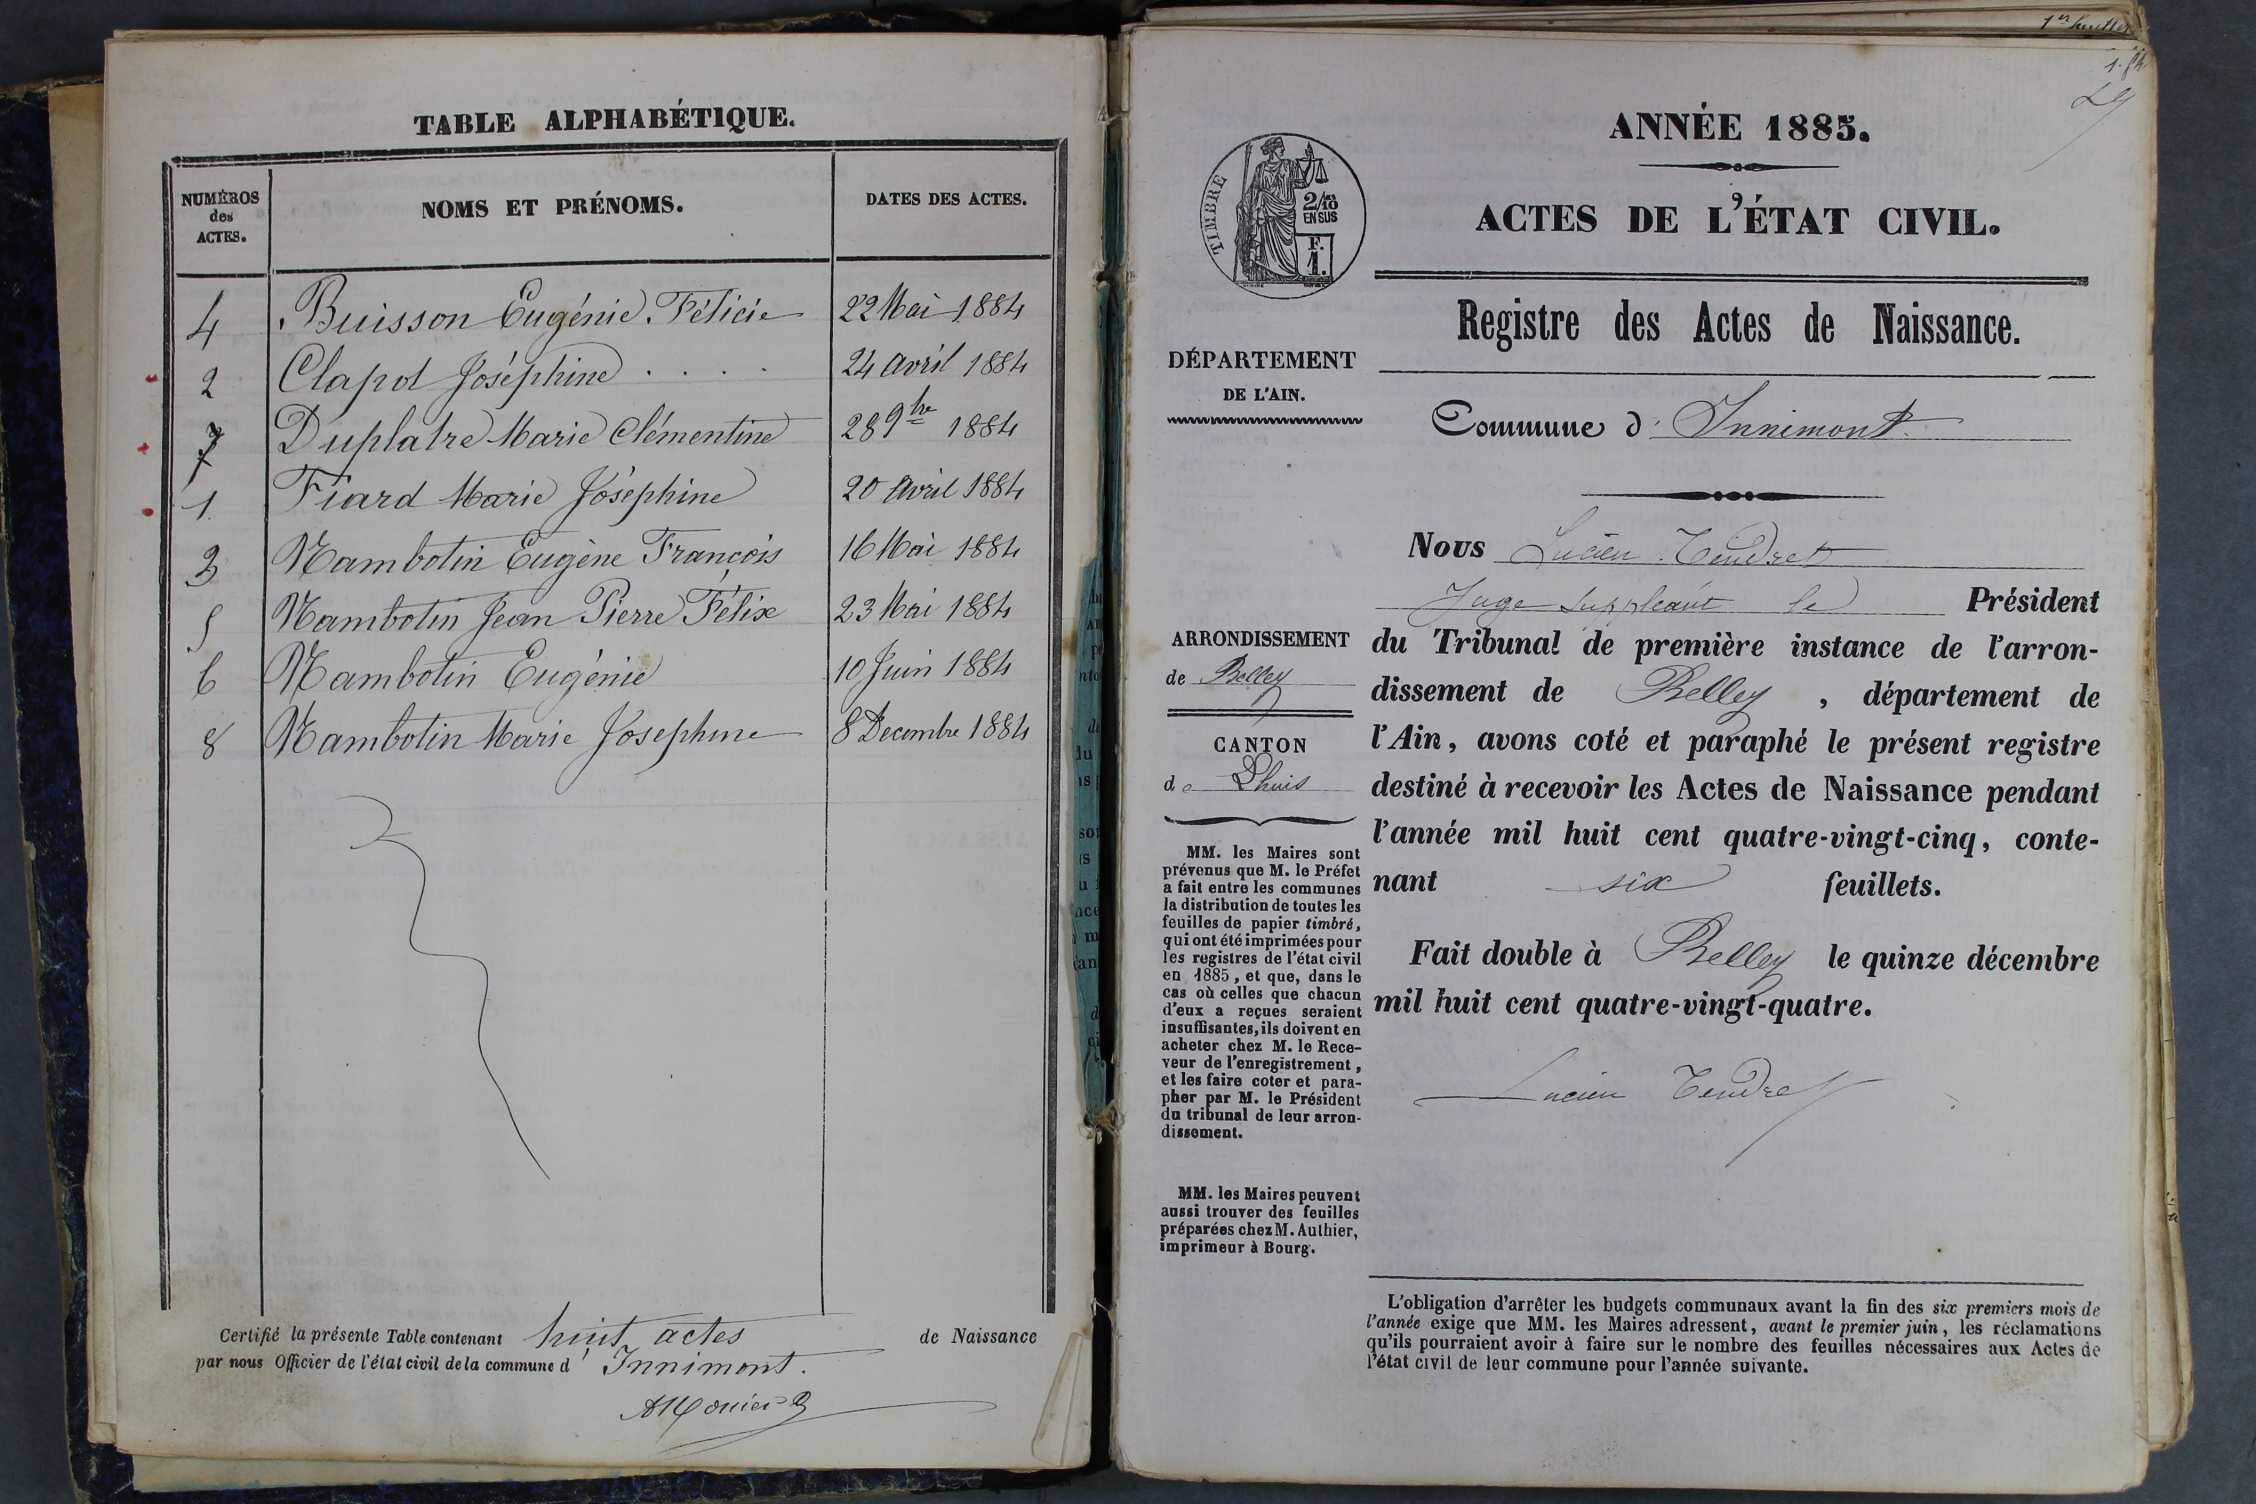 TABLE ALPHABÉTIQUE.
NUMÉROS des ACTES. NOMS ET PRÉNOMS. DATES DES ACTES.
4 Buisson Eugénie Félicie 22 Mai 1884
2 Clapot Joséphine . . . . 24 avril 1884
7 Duplatre Marie Clémentine 28 9bre 1884
1 Fiard Marie Joséphine 20 Avril 1884
3 Mambotin Eugène François 16 Mai 1884
5 Mambotin Jean Pierre Félix 23 Mai 1884
6 Mambotin Eugénie 10 Juin 1884
8 Mambotin Marie Josephine 8 Decembre 1884
Certifié la présente Table contenant huit actes de Naissance
par nous Officier de l'état civil de la commune d' Innimont.
1er feuillet
ANNÉE 1885.
TIMBRE
2/10
EN SUS
F.
1.
ACTES DE L'ÉTAT CIVIL.
Registre des Actes de Naissance.
DÉPARTEMENT
DE L'AIN.
Commune d' Innimont
Nous Lucien Tendret
Juge suppléant le Président
du Tribunal de première instance de l'arron-
dissement de Belley, département de
l'Ain, avons coté et paraphé le présent registre
destiné à recevoir les Actes de Naissance pendant
l'année mil huit cent quatre-vingt-cinq, conte-
nant six feuillets.
Fait double à Belley le quinze décembre
mil huit cent quatre-vingt-quatre.
Lucien Tendret
ARRONDISSEMENT
de Belley
CANTON
de Lhuis
MM. les Maires sont
prévenus que M. le Préfet
a fait entre les communes
la distribution de toutes les
feuilles de papier timbré,
qui ont été imprimées pour
les registres de l'état civil
en 1885, et que, dans le
cas où celles que chacun
d'eux a reçues seraient
insuffisantes, ils doivent en
acheter chez M. le Rece-
veur de l'enregistrement,
et les faire coter et para-
pher par M. le Président
du tribunal de leur arron-
dissement.
MM. les Maires peuvent
aussi trouver des feuilles
préparées chez M. Authier,
imprimeur à Bourg.
L'obligation d'arrêter les budgets communaux avant la fin des six premiers mois de
l'année exige que MM. les Maires adressent, avant le premier juin, les réclamations
qu'ils pourraient avoir à faire sur le nombre des feuilles nécessaires aux Actes de
l'état civil de leur commune pour l'année suivante.